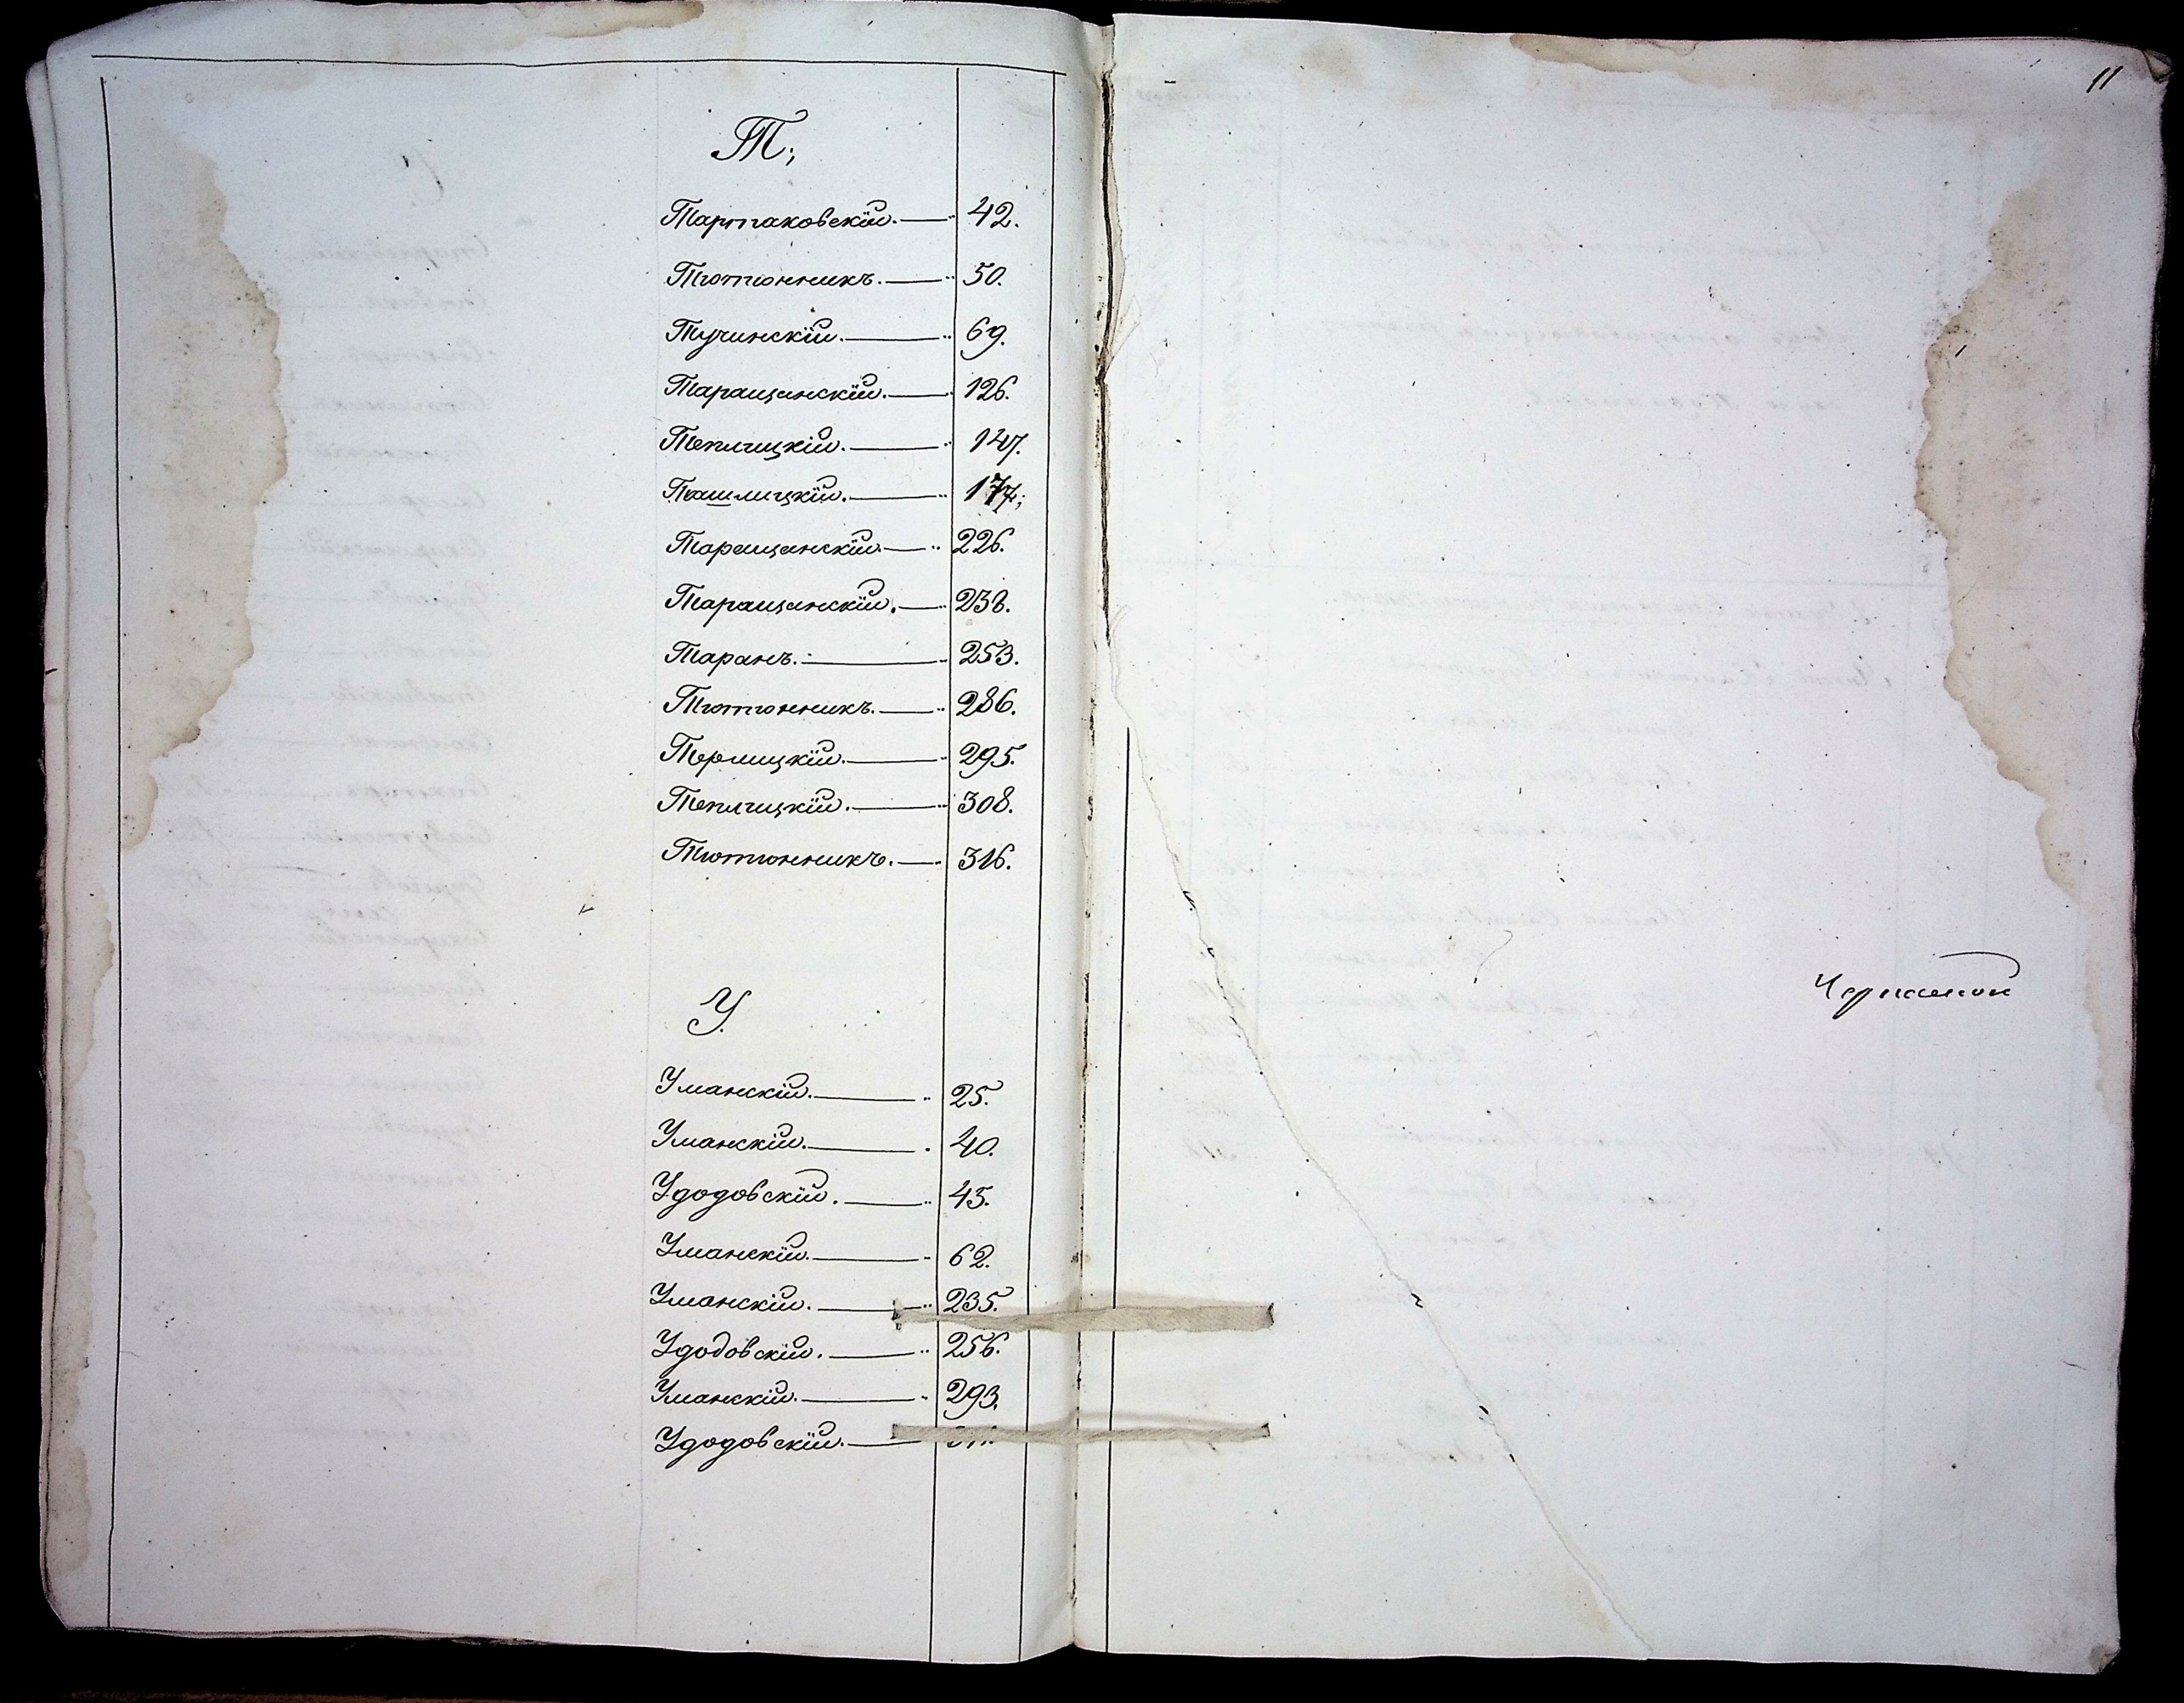 Т;
Тартаковскій. 42.
Тютюнникъ. 50.
Тучинскій. 69.
Таращанскій. 126.
Теплицкій. 147.
Ташлицкій. 177;
Таращанскій. 226.
Таращанскій. 238.
Таранъ. 253.
Тютюнникъ. 286.
Терлицкій. 295.
Теплицкій. 308.
Тютюнникъ. 316.
У.
Уманскій. 25.
Уманскій. 40.
Удодовскій. 45.
Уманскій. 62.
Уманскій. 235.
Удодовскій. 256.
Уманскій. 293.
Удодовскій.
11